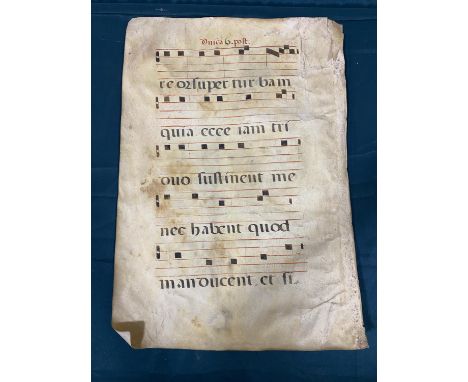 Dnica 6. post.
re or super tur bam
quia ecce iam tri
duo sustinent me
nec habent quod
manducent. et si